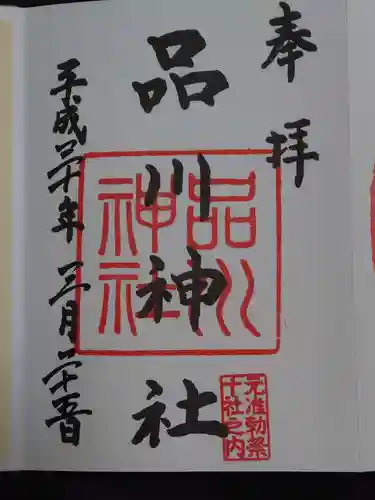 奉拝
品川神社
平成三十年三月二十五日
品川
神社
元准勅祭
十社之内